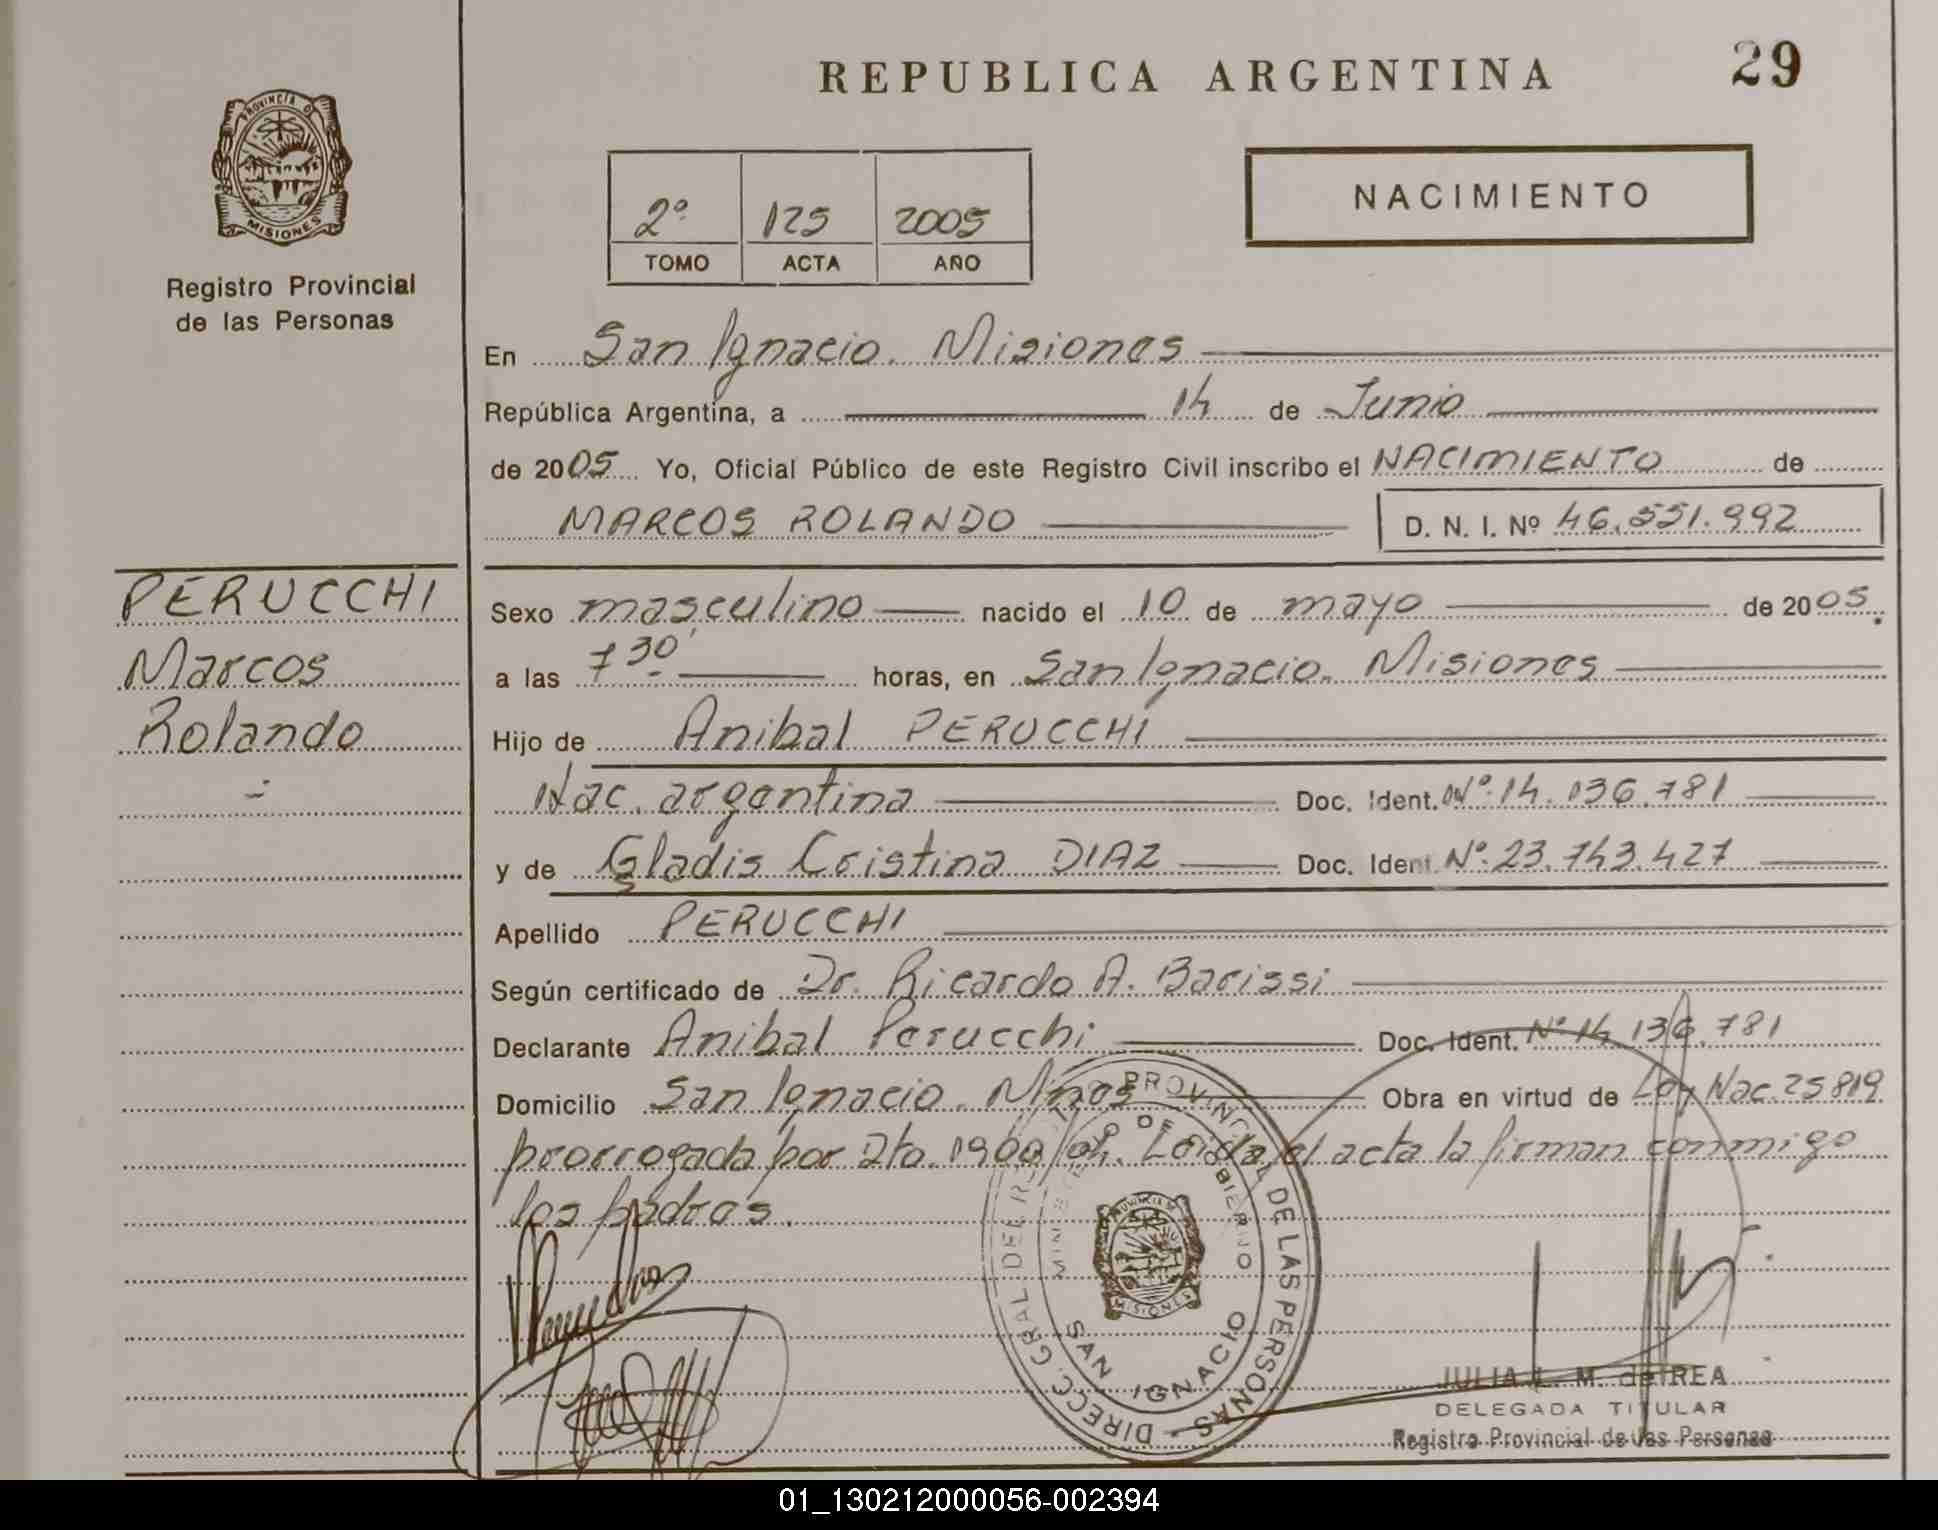 REPUBLICA ARGENTINA
29
PROVINCIA DE
MISIONES
Registro Provincial
de las Personas
2º 125 2005
TOMO ACTA AÑO
NACIMIENTO
En San Ignacio. Misiones
República Argentina, a 14 de Junio
de 2005 Yo, Oficial Público de este Registro Civil inscribo el NACIMIENTO de
MARCOS ROLANDO D. N. I. Nº 46.551.992
PERUCCHI
Marcos
Rolando
Sexo masculino nacido el 10 de mayo de 2005.
a las 7 30' horas, en San Ignacio. Misiones
Hijo de Anibal PERUCCHI
Nac. argentina Doc. Ident. Nº 14.136.781
y de Gladis Cristina DIAZ Doc. Ident. Nº 23.743.427
Apellido PERUCCHI
Según certificado de Dr. Ricardo A. Barissi
Declarante Anibal Perucchi Doc. Ident. Nº 14.136.781
Domicilio San Ignacio. Mnes Obra en virtud de Ley Nac. 25819
prorrogada por Dto. 1900/04. Leida el acta la firman conmigo
los padres.
DIRECC. GRAL DEL REG. PROVINCIAL DE LAS PERSONAS
MINISTERIO DE GOBIERNO
MISIONES
SAN IGNACIO
JULIA L. M. de IREA
DELEGADA TITULAR
Registro Provincial de las Personas
01_130212000056-002394